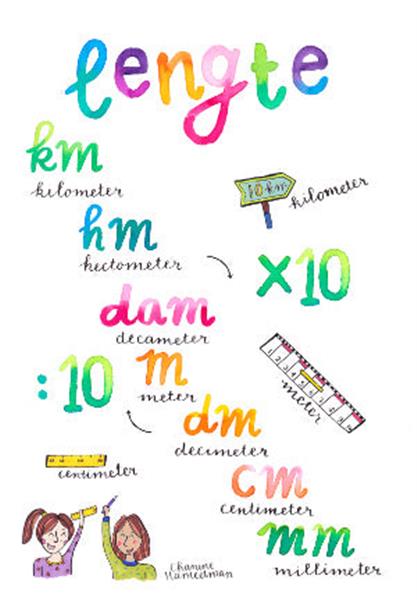 lengte
km
kilometer
10 km
kilometer
hm
hectometer
x10
dam
decameter
:10
m
meter
meter
dm
decimeter
centimeter
cm
centimeter
mm
millimeter